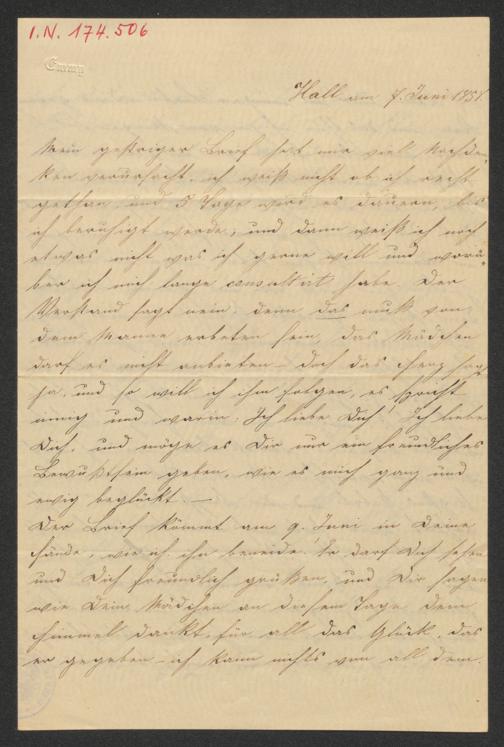 I.N. 174.506
Emmy
Hall am 7. Juni 1851.
Mein gestriger Brief hat mir viel Nachden-
ken verursacht, ich weiß nicht ob ich recht
gethan, und 5 Tage wird es dauern, bis
ich beruhigt werde, und dann weiß ich noch
etwas nicht was ich gerne will und worü-
ber ich mich lange consultirt habe. Der
Verstand sagt nein. denn das muß von
dem Manne erbeten sein, das Mädchen
darf es nicht anbieten – doch das Herz sagt
ja, und so will ich ihm folgen, es spricht
innig und warm. Ich liebe Dich! Ich liebe
Dich, und möge es Dir nur ein freundliches
Bewußtsein geben, wie es mich ganz und
ewig beglückt. –
Der Brief kömmt am 9. Juni in Deine
Hände, wie ich ihn beneide! Er darf Dich sehen
und Dich freundlich grüßen, und Dir sagen
wie Dein Mädchen an diesem Tage dem
Himmel dankt, für all das Glück, das
er gegeben – ich kann nichts von all dem